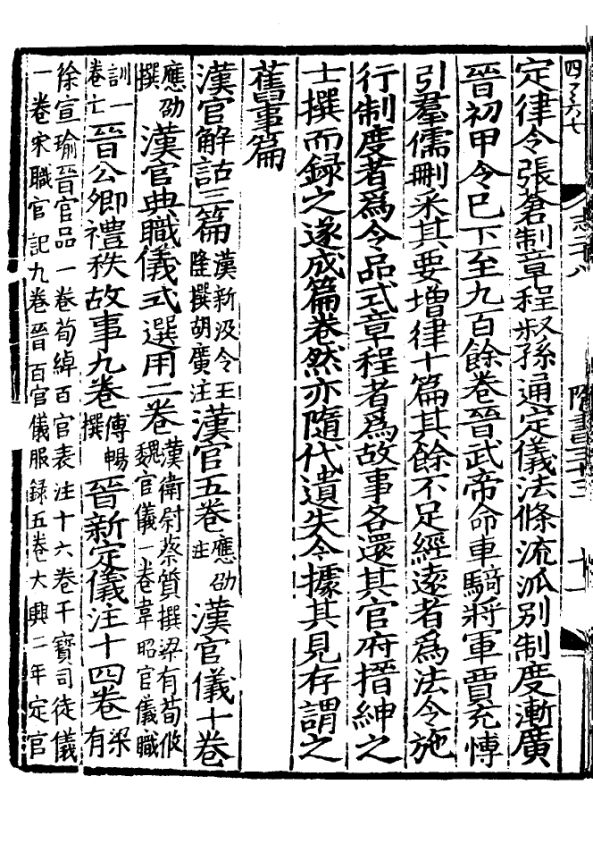 隋書三十三
十一
定律令張蒼制章程叔孫通定儀法條流派別制度漸廣
晉初甲令已下至九百餘卷晉武帝命車騎將軍賈充博
引羣儒刪采其要增律十篇其餘不足經遠者爲法令施
行制度者爲令品式章程者爲故事各還其官府搢紳之
士撰而録之遂成篇卷然亦隨代遺失今據其見存謂之
舊事篇
漢官解詁三篇漢新汲令王隆撰胡廣注漢官五卷應劭注漢官儀十卷
應劭撰漢官典職儀式選用二卷漢衛尉蔡質撰梁有荀攸魏官儀一卷韋昭官儀職
訓一卷亡晉公卿禮秩故事九卷傅暢撰晉新定儀注十四卷梁有
徐宣瑜晉官品一卷荀綽百官表注十六卷干寶司徒儀
一卷宋職官記九卷晉百官儀服録五卷大興二年定官